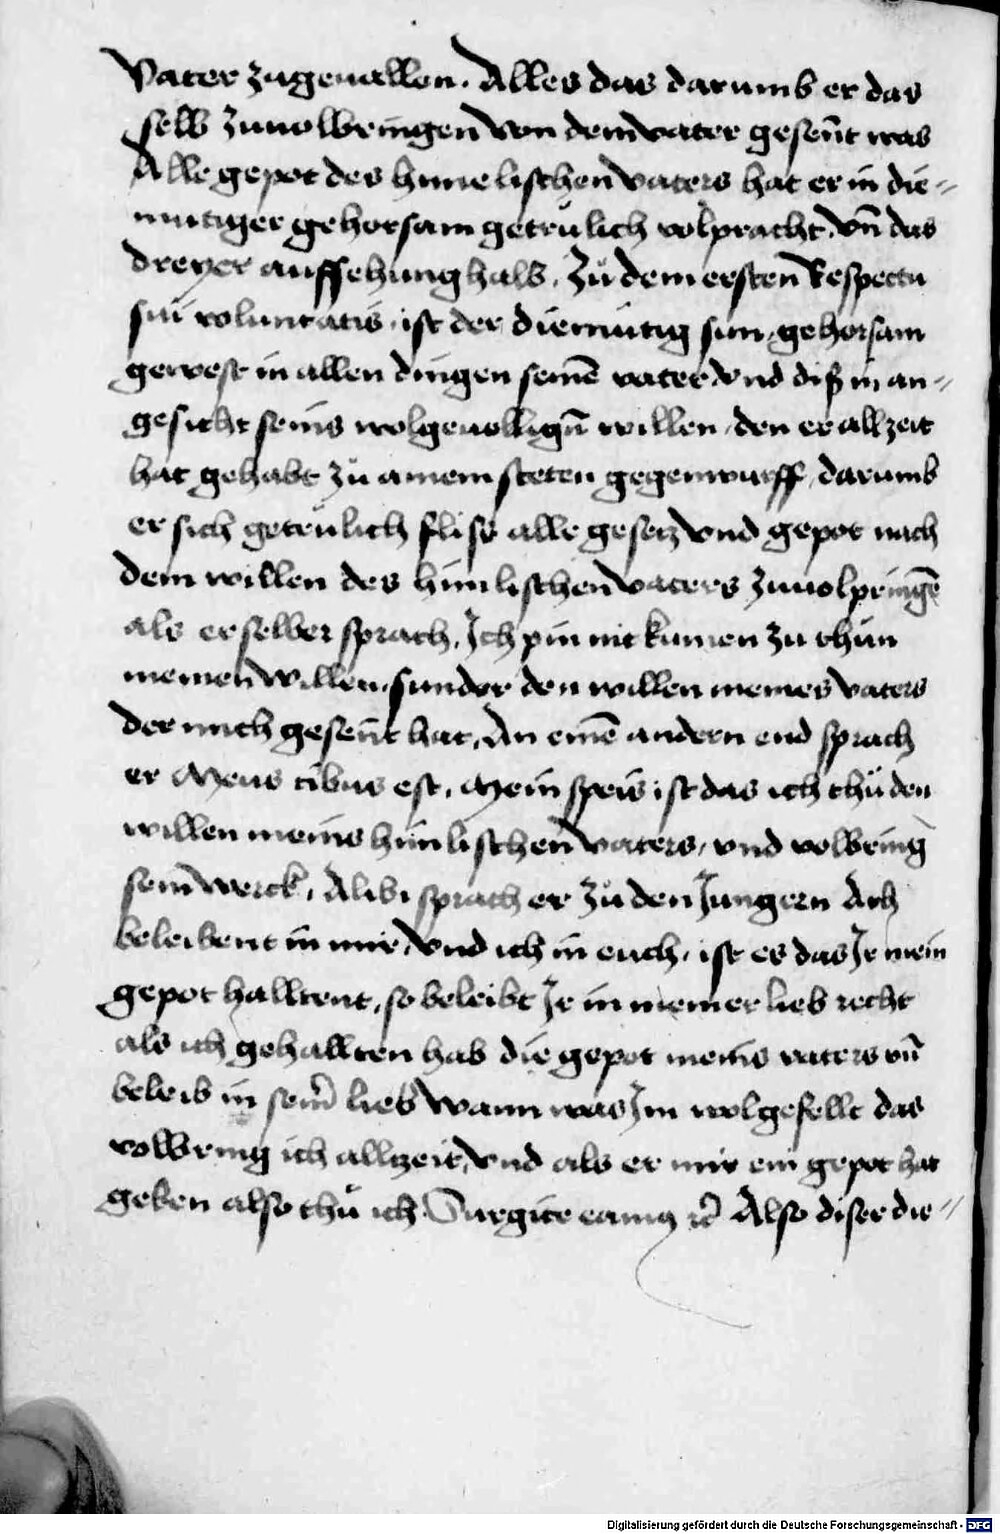 Vater zugeuallen. Alles das darumb er das
selb zuuolbringen von dem vater gesen̄t was
Alle gepot des himelischen vaters hat er in die⸗
mutiger gehorsam getrůlich volpracht. Vn̄ das
dreyer auffsehung halb. Zů dem ersten Respectu
sui voluntatis. ist der diemütig sun. gehorsam
gewest in allen dingen seinē vater. Vnd diß in an⸗
gesicht seins wolgeuellign̄ willen. den er allzeit
hat gehabt zů ainem steten gegenwurff, darumb
er sich getrůlich fliss alle gesetz vnd gepot nach
dem willen des himlischen vaters zuuolpringē
als er selber sprach. Ich pin nit kumen zu thun
meinen willen. sunder den willen meines vaters
der mich gesen̄t hat. An einē andern end sprach
er Meus cibus est. Mein speis ist das ich thů den
willen meins himlischen vaters, vnd volbring
sein werck. Alibi sprach er zů den Jungern Ach
beleibent in mir. Vnd ich in euch. ist es das Jr mein
gepot halltent. so beleibt Jr in meiner lieb recht
als ich gehallten hab die gepot meins vaters vn̄
beleib in sein̄ lieb Wann was Jm wolgefellt das
volbring ich allzeit. Vnd als er mir ein gepot hat
geben also thů ich. Surgite eamus ꝛc̄ Also diser die⸗
Digitalisierung gefördert durch die Deutsche Forschungsgemeinschaft - DFG